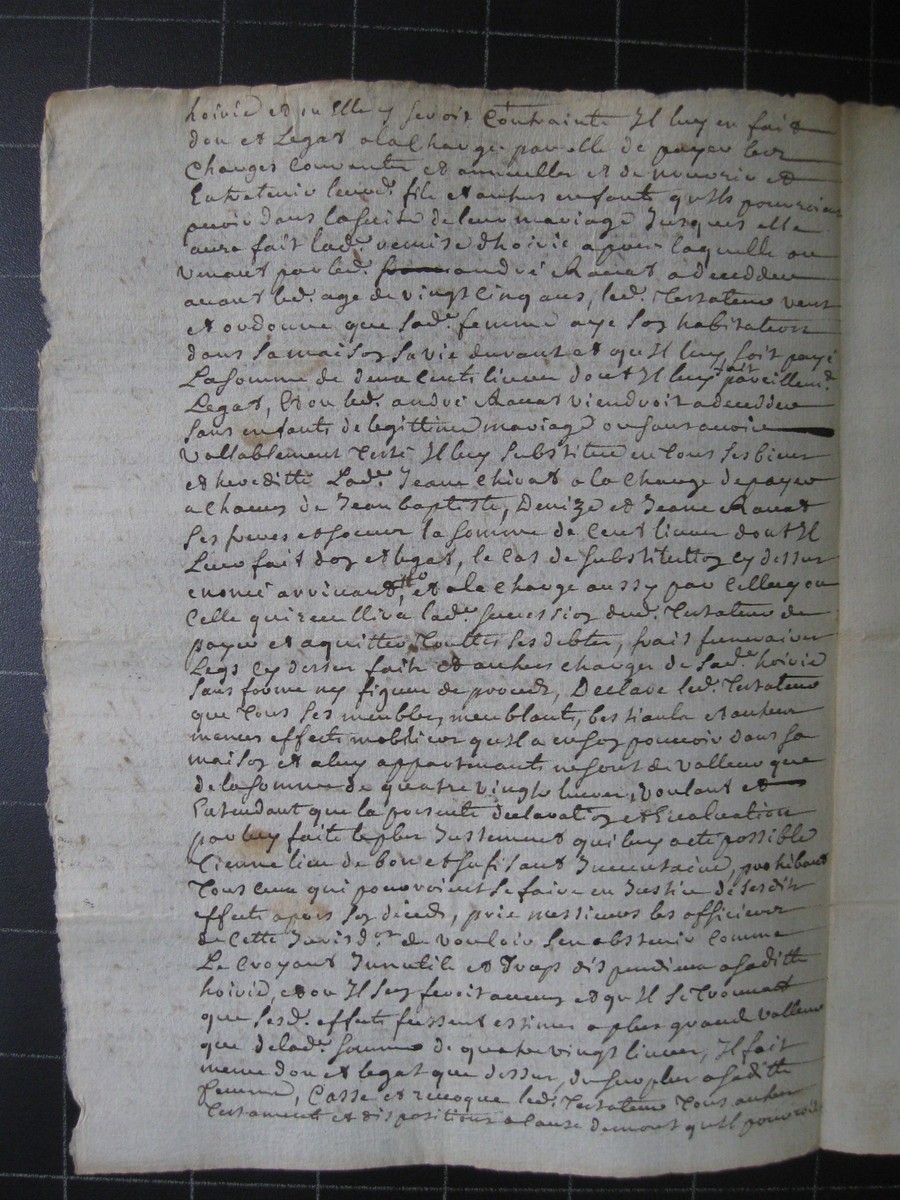 hoirie et ou Elle y seroit Contrainte Il luy en fait
don et Legat a la Charge par elle de payer les
Charges Courantes et annuelles et de nourrir et
Entretenir leurd. fils et autres enfants qu'ils pourroient
avoir dans la suite de leur mariage Jusques elle
aura fait lad.e remise d'hoirie apres laquelle ou
venant par led. andré Ranat a decedder
avant led. age de vingt Cinq ans, led. Testateur veut
et ordonne que sad.e femme aye son habitation
dans sa maison sa vie durant et qu'Il luy soit payé
La somme de deux Cents livres dont Il luy fait pareillemt.
Legat, Et ou led. andré Ranat viendroit a decedder
sans enfants de legittime mariage ou sans avoir
vallablement Testé Il luy substitue en tous ses biens
et heredité Lad.e Jeane Chivat a la Charge de payer
a chacun de Jean baptiste, Denize et Jeane Ranat
ses freres et soeurs la somme de Cent livres dont Il
Leur fait don et legat, le Cas de substitution cy dessus
enoncé arrivant, et a la Charge aussy par Celluy ou
Celle qui recuellira lad.e succession dud. Testateur de
payer et aquitter touttes ses debtes, frais funeraires
Legs Cy dessus faits et autres charges de sad.e hoirie
sans forme ny figure de procès, Declare led. Testateur
que tous ses meubles, meublants, bestiaux et autres
menus effects mobiliers qu'Il a en son pouvoir dans sa
maison et a luy appartenants ne sont de valleur que
de la somme de quatre vingts livres, voulant et
Entendant que la presente declaration et Evaluation
par luy faite le plus Justement qui luy a eté possible
Tienne lieu de bon et sufisant Inventaire, prohibant
Tous Ceux qui pourroient se faire en Justice de sesdits
effects apres son décès, prie messieurs les officiers
de Cette Jurisd.on de vouloir s'en abstenir Comme
Le Croyant Innutile et trop dispendieux a saditte
hoirie, et ou Il s'en feroit aucun et qu'Il se trouvat
que sesd. effects fussent estimes a plus grande valleur
que de lad.e somme de quatre vingt livres, Il fait
meme don et legat que dessus, du surplus a saditte
femme, Casse et revoque led. Testateur tous autres
Testaments et dispositions a Cause de mort qu'Il pourroit